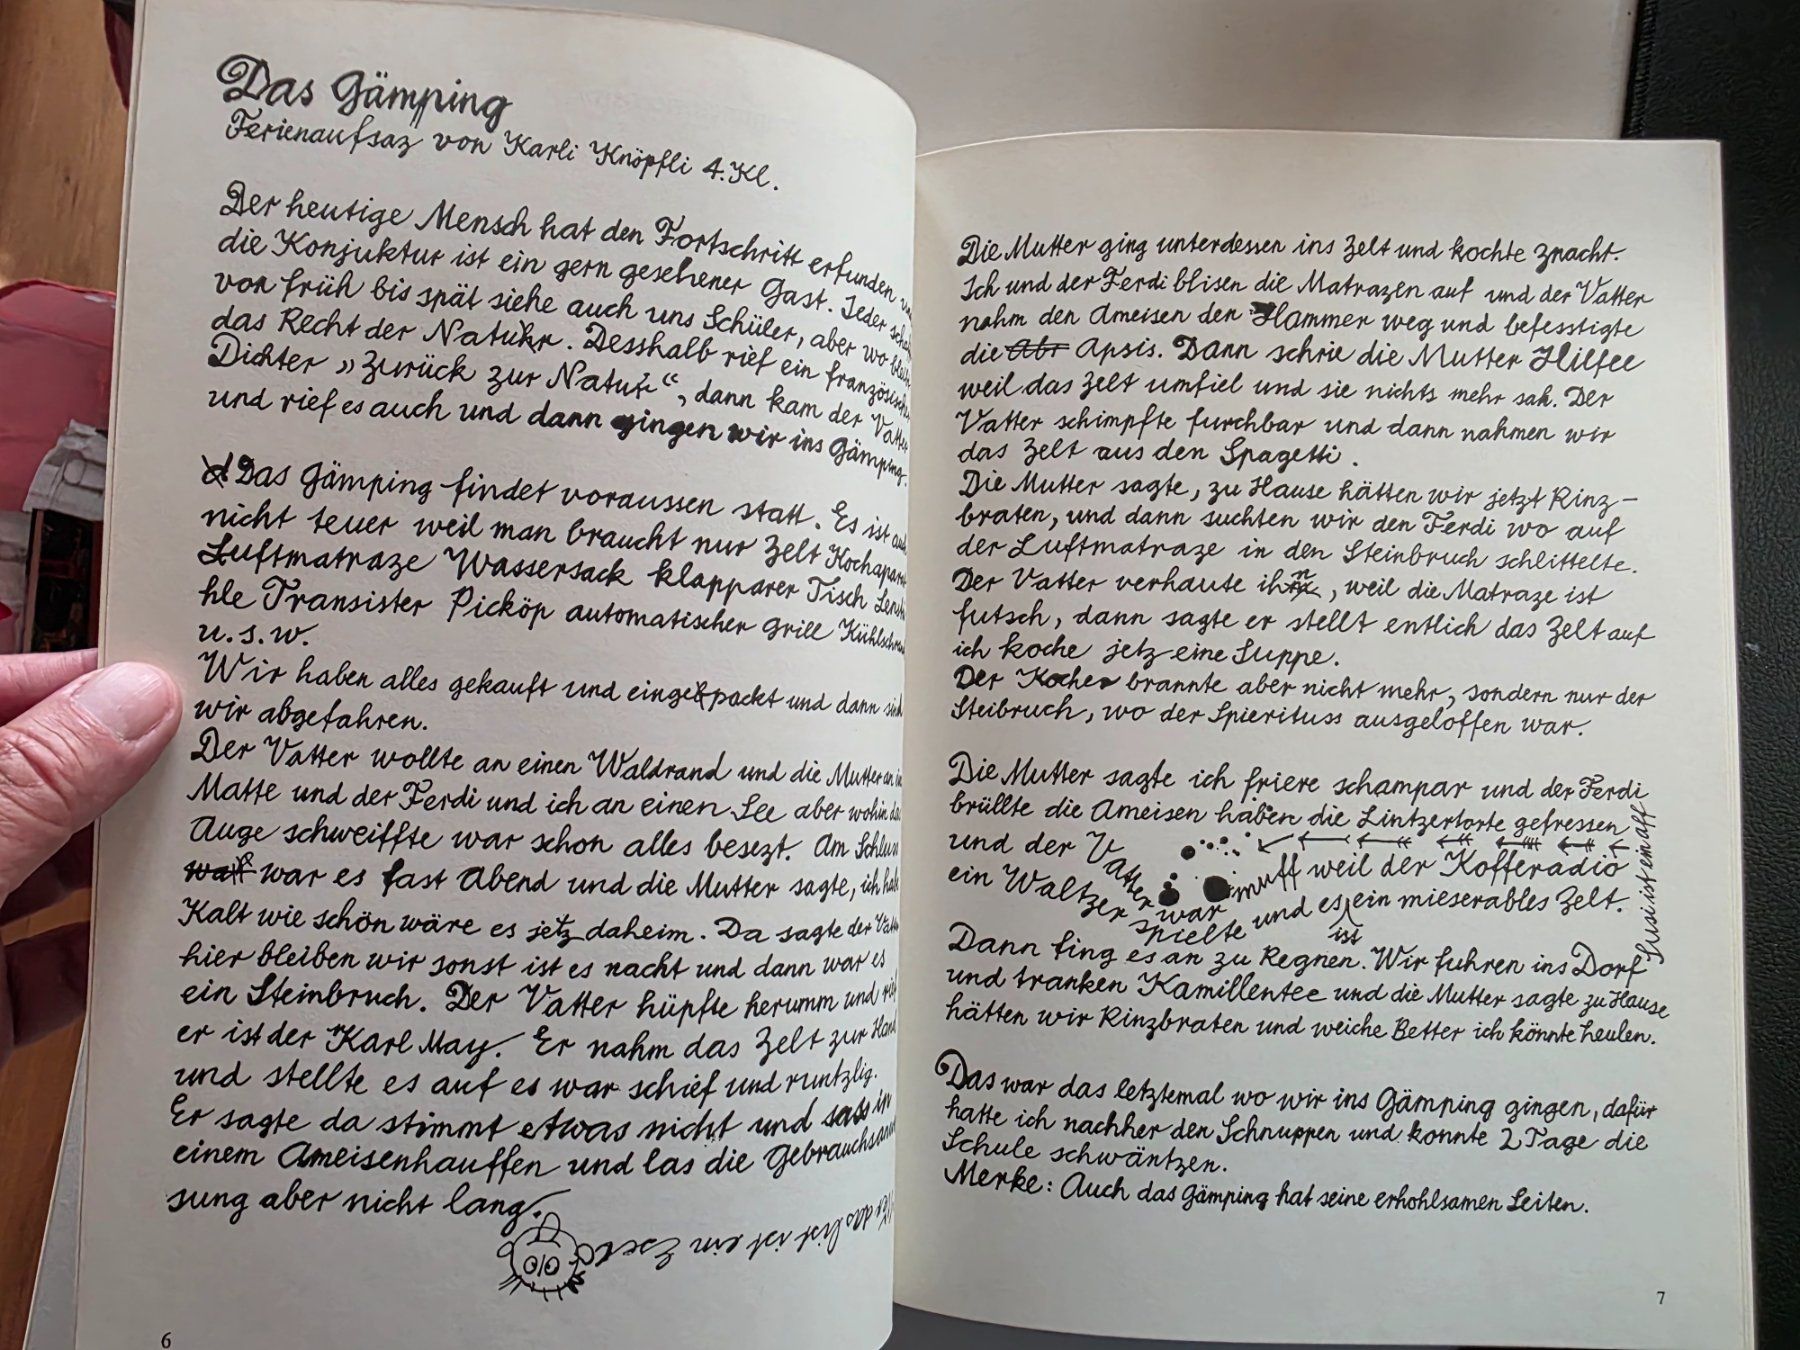 Das Gämping
Ferienaufsaz von Karli Knöpfli 4.Kl.
Der heutige Mensch hat den Fortschritt erfunden
die Konjuktur ist ein gern gesehener Gast. Jeder
von früh bis spät siehe auch uns Schüler, aber wo
das Recht der Natuhr. Desshalb rief ein französischer
Dichter „Zurück zur Natur“, dann kam der Vatter
und rief es auch und dann gingen wir ins Gämping.
Das Gämping findet voraussen statt. Es ist
nicht teuer weil man braucht nur Zelt
Luftmatraze Wassersack klapparer Tisch
hle Transister Picköp automatischer Grill
u.s.w.
Wir haben alles gekauft und eingepackt und dann sind
wir abgefahren.
Der Vatter wollte an einen Waldrand und die Mutter an
Matte und der Ferdi und ich an einen See aber wohin das
Auge schweiffte war schon alles besezt. Am
war es fast Abend und die Mutter sagte, ich
Kalt wie schön wäre es jetz daheim. Da sagte der Vatter
hier bleiben wir sonst ist es nacht und dann war es
ein Steinbruch. Der Vatter hüpfte herumm und rief
er ist der Karl May. Er nahm das Zelt zur Hand
und stellte es auf es war schief und runtzlig.
Er sagte da stimmt etwas nicht und sass in
einem Ameisenhauffen und las die
sung aber nicht lang.
ist ein
6
Die Mutter ging unterdessen ins Zelt und kochte znacht.
Ich und der Ferdi blisen die Matrazen auf und der Vatter
nahm den Ameisen den Hammer weg und befesstigte
die Abr Apsis. Dann schrie die Mutter Hilfee
weil das Zelt umfiel und sie nichts mehr sah. Der
Vatter schimpfte furchbar und dann nahmen wir
das Zelt aus den Spagetti.
Die Mutter sagte, zu Hause hätten wir jetzt Rinz-
braten, und dann suchten wir den Ferdi wo auf
der Luftmatraze in den Steinbruch schlittelte.
Der Vatter verhaute ihn, weil die Matraze ist
futsch, dann sagte er stellt entlich das Zelt auf
ich koche jetz eine Suppe.
Der Kocher brannte aber nicht mehr, sondern nur der
Steibruch, wo der Spierituss ausgeloffen war.
Die Mutter sagte ich friere schampar und der Ferdi
brüllte die Ameisen haben die Lintzertorte gefressen
und der Vatter war muff weil der Kofferadio
ein Waltzer spielte und es ist ein mieserables Zelt.
Susi ist ein aff
Dann fing es an zu Regnen. Wir fuhren ins Dorf
und tranken Kamillentee und die Mutter sagte zu Hause
hätten wir Rinzbraten und weiche Better ich könnte heulen.
Das war das letztemal wo wir ins Gämping gingen, dafür
hatte ich nachher den Schnuppen und konnte 2 Tage die
Schule schwäntzen.
Merke: Auch das Gämping hat seine erhohlsamen Seiten.
7